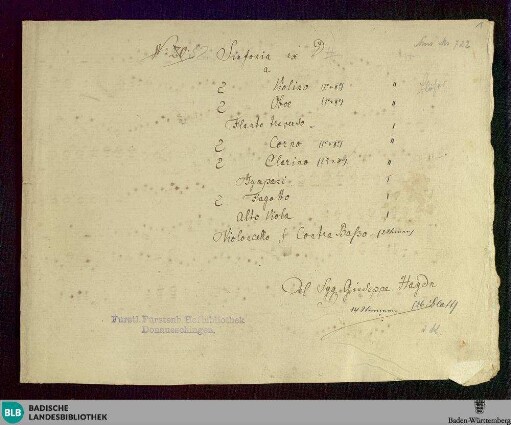 1
Sinfonia ex D
a
2 Violino
2 Oboe
Flauto traverso
2 Corno
2 Clarino
Tympani
2 Fagotto
Alto Viola
Violoncello & Contra Basso
Del Sig. Giuseppe Haydn
Fürstl. Fürstenb. Hofbibliothek
Donaueschingen.
BLB BADISCHE
LANDESBIBLIOTHEK
Baden-Württemberg